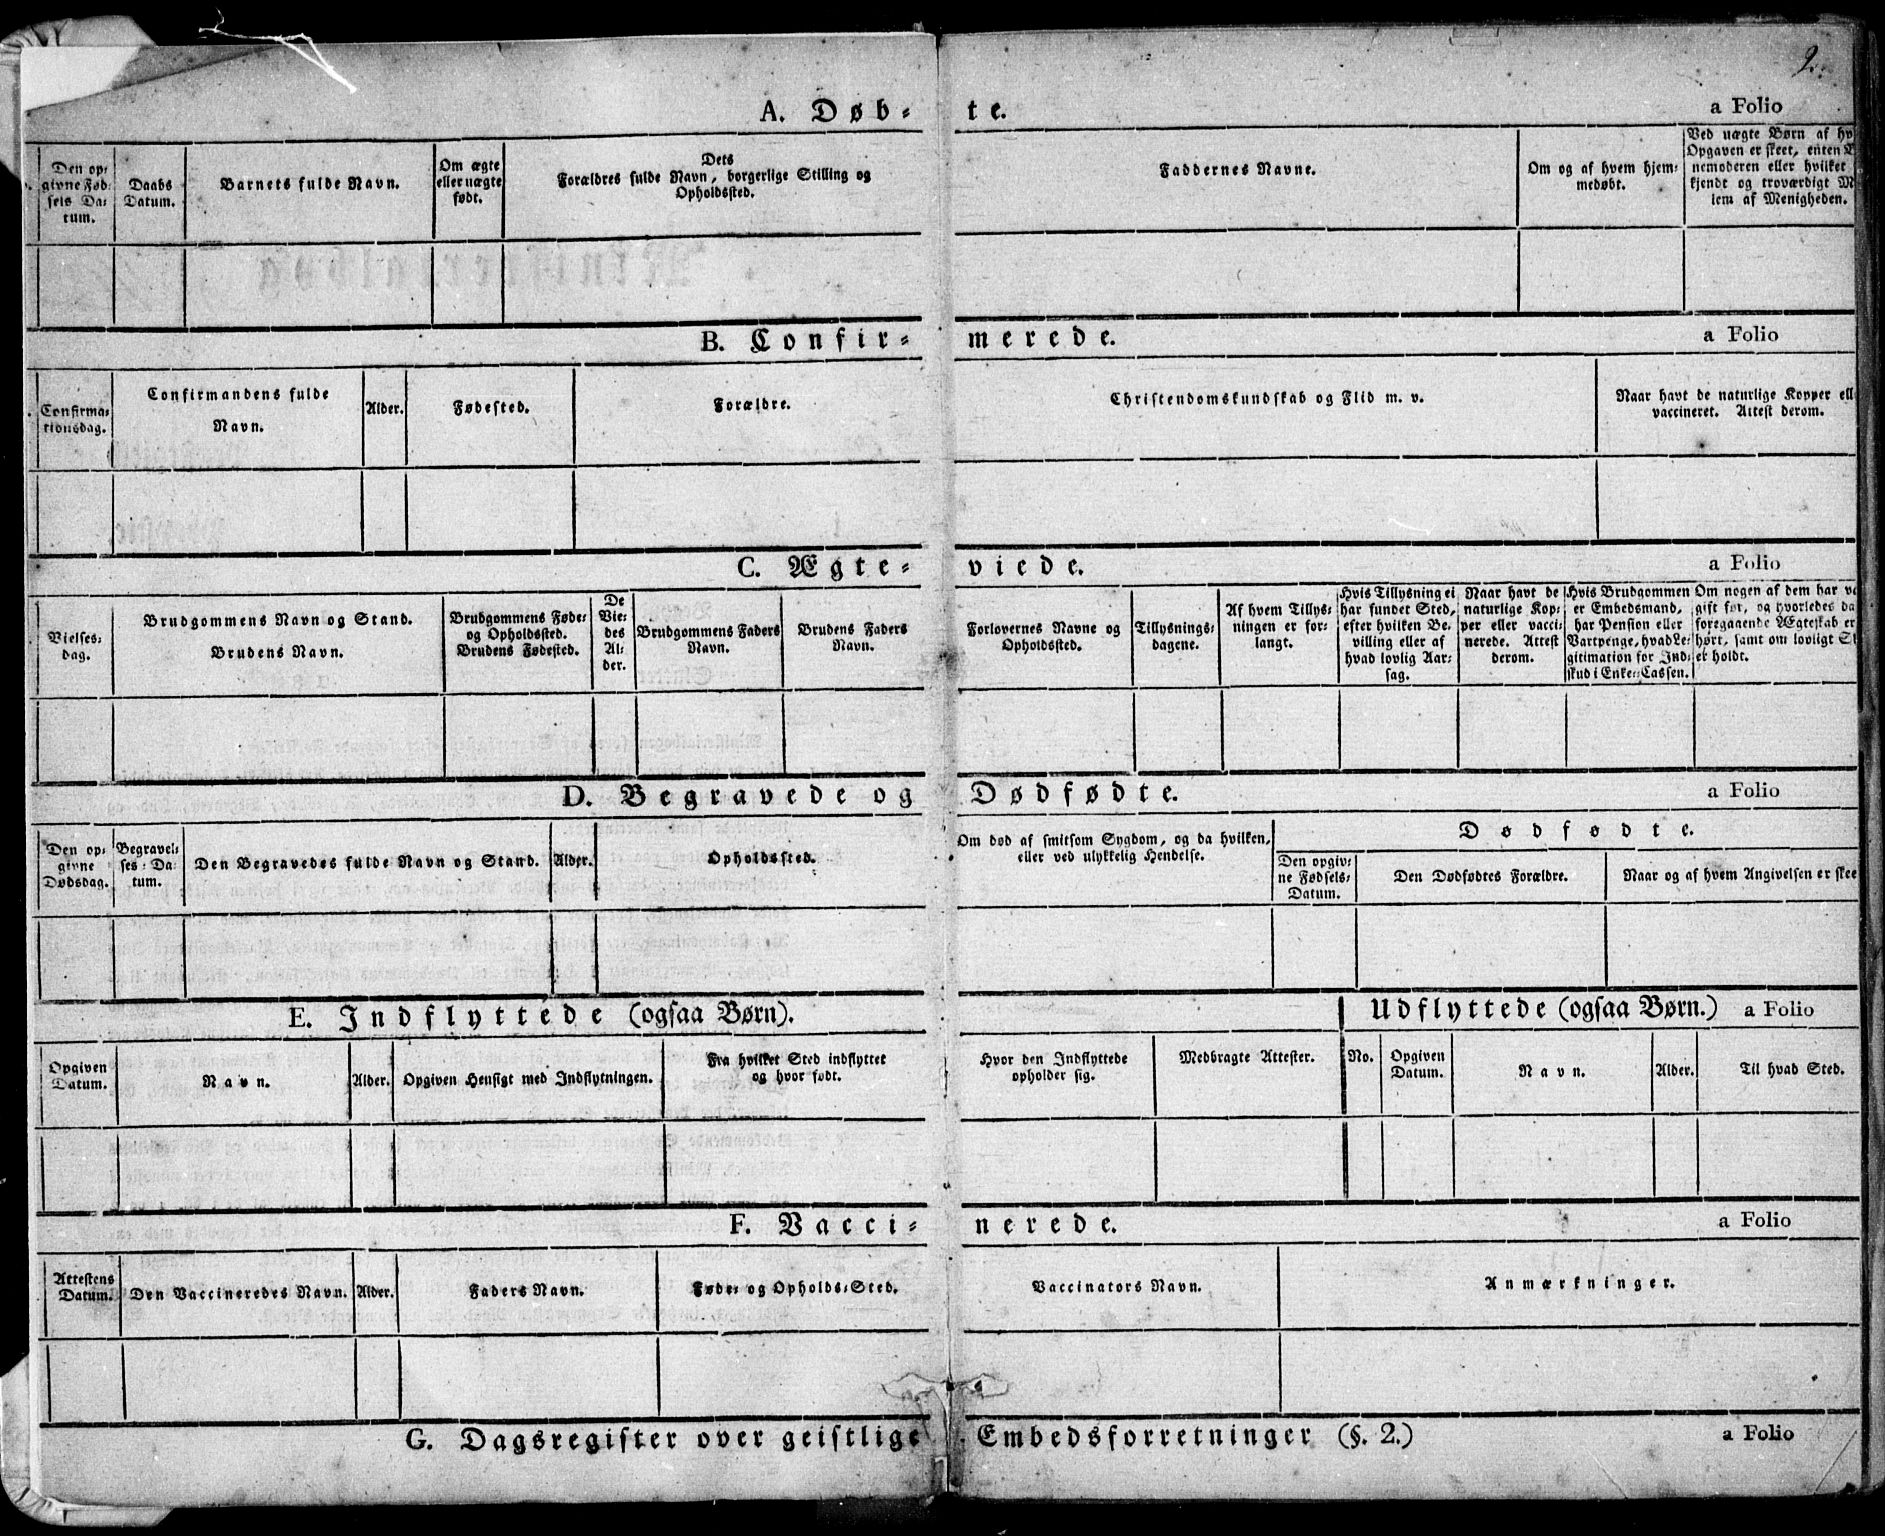 2.
A. Døb-te. a Folio
Den op-
givne Fød-
sels Da-
tum.
Daabs
Datum.
Barnets fulde Navn.
Om ægte
eller uægte
født.
Dets
Forældres fulde Navn, borgerlige Stilling og
Opholdssted.
Faddernes Navne.
Om og af hvem hjem-
medøbt.
Ved uægte Børn af
Opgaven er skeet, enten
kjendt og troværdigt
lem af Menigheden.
B. Confir-merede. a Folio
Confirma-
tionsdag.
Confirmandens fulde
Navn.
Alder.
Fødested.
Forældre.
Christendomskundskab og Flid m. v.
Naar havt de naturlige Kopper
vaccineret. Attest derom.
C. Ægte-viede. a Folio
Vielses-
dag.
Brudgommens Navn og Stand.
Brudens Navn.
Brudgommens Føde-
og Opholdssted.
Brudens Fødested.
De
Vie-
des
Al-
der.
Brudgommens Faders
Navn.
Brudens Faders
Navn.
Forlovernes Navne og
Opholdssted.
Tillysnings-
dagene.
Af hvem Tillys-
ningen er for-
langt.
Hvis Tillysning ei
har fundet Sted,
efter hvilken Be-
villing eller af
hvad lovlig Aar-
sag.
Naar havt de
naturlige Kop-
per eller vacci-
nerede. Attest
derom.
Hvis Brudgommen
er Embedsmand,
har Pension eller
Vartpenge, hvad Le-
gitimation for Ind-
skud i Enke-Cassen.
Om nogen af dem har
gift før, og hvorledes
foregaaende Ægteskab er
hørt, samt om lovligt
er holdt.
D. Begravede og Dødfødte. a Folio
Den op-
givne
Dødsdag.
Begravel-
ses-Da-
tum.
Den Begravedes fulde Navn og Stand.
Alder.
Opholdssted.
Om død af smitsom Sygdom, og da hvilken,
eller ved ulykkelig Hendelse.
Dødfødte.
Den opgiv-
ne Fødsels-
Datum.
Den Dødfødtes Forældre.
Naar og af hvem Angivelsen er
E. Indflyttede (ogsaa Børn). Udflyttede (ogsaa Børn.) a Folio
Opgiven
Datum.
Navn.
Alder.
Opgiven Hensigt med Indflytningen.
Fra hvilket Sted indflyttet
og hvor født.
Hvor den Indflyttede
opholder sig.
Medbragte Attester.
No.
Opgiven
Datum.
Navn.
Alder.
Til hvad Sted.
F. Vacci-nerede. a Folio
Attestens
Datum.
Den Vaccineredes Navn.
Alder.
Faders Navn.
Føde- og Opholds-Sted.
Vaccinators Navn.
Anmærkninger.
G. Dagsregister over geistlige Embedsforretninger (§. 2.) a Folio